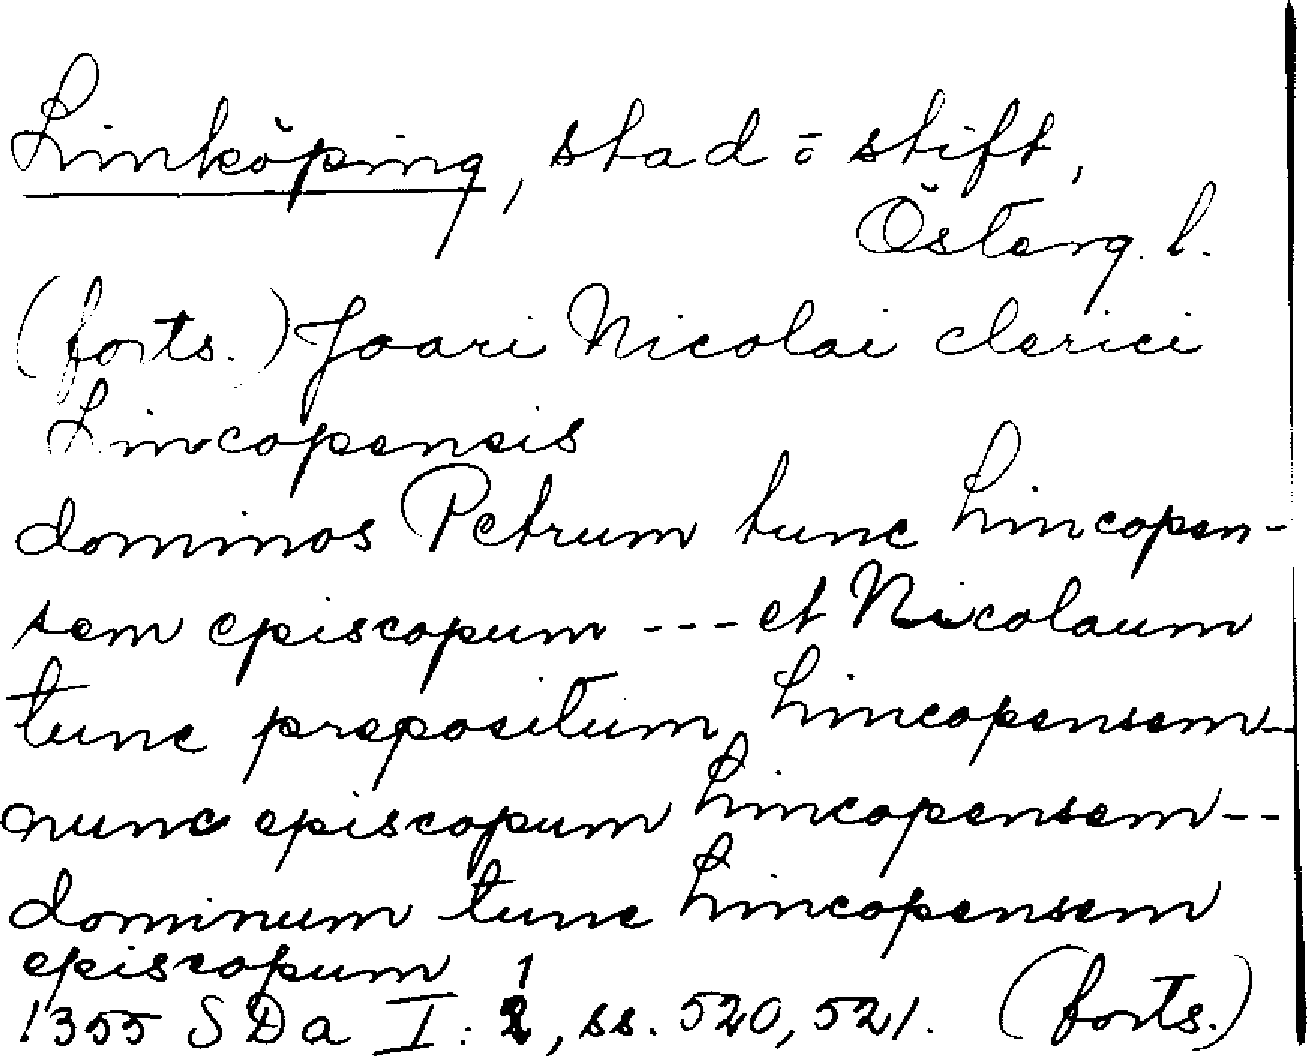 Linköping, stad o stift,
Österg. l.
(forts.) Joari Nicolai clerici
Lincopensis
dominos Petrum tunc Lincopen-
sem episcopum --- et Nicolaum
tunc prepositum Lincopensem -
nunc episcopum Lincopensem --
dominum tunc Lincopensem
episcopum
1355 SDa I: 1, ss. 520, 521. (forts.)